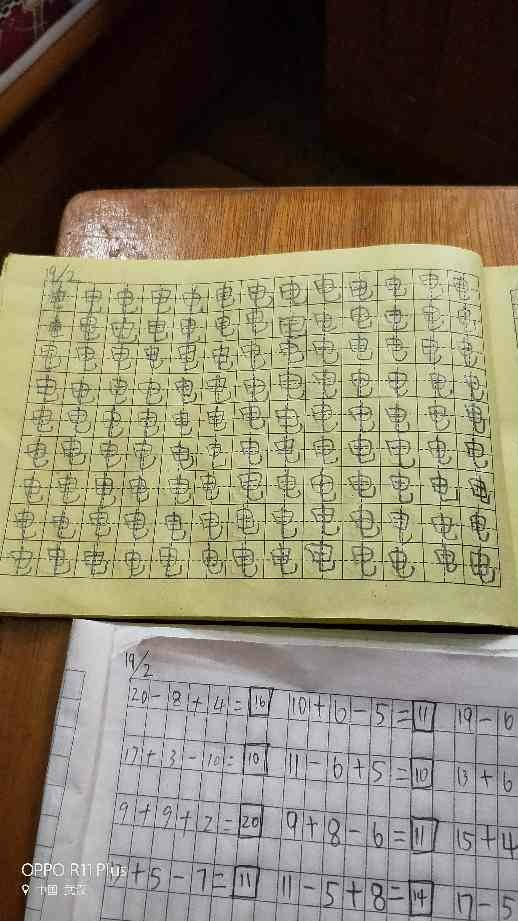 19/2
电 电 电 电 电 电 电 电 电 电 电 电 电
电 电 电 电 电 电 电 电 电 电 电 电 电
电 电 电 电 电 电 电 电 电 电 电 电 电
电 电 电 电 电 电 电 电 电 电 电 电 电
电 电 电 电 电 电 电 电 电 电 电 电 电
电 电 电 电 电 电 电 电 电 电 电 电 电
电 电 电 电 电 电 电 电 电 电 电 电 电
电 电 电 电 电 电 电 电 电 电 电 电 电
电 电 电 电 电 电 电 电 电 电 电 电 电
19/2
20-8+4=16 10+6-5=11 19-6
17+3-10=10 11-6+5=10 13+6
9+9+2=20 9+8-6=11 15+4
+5-7=11 11-5+8=14 17-5
OPPO R11 Plus
中国·武汉